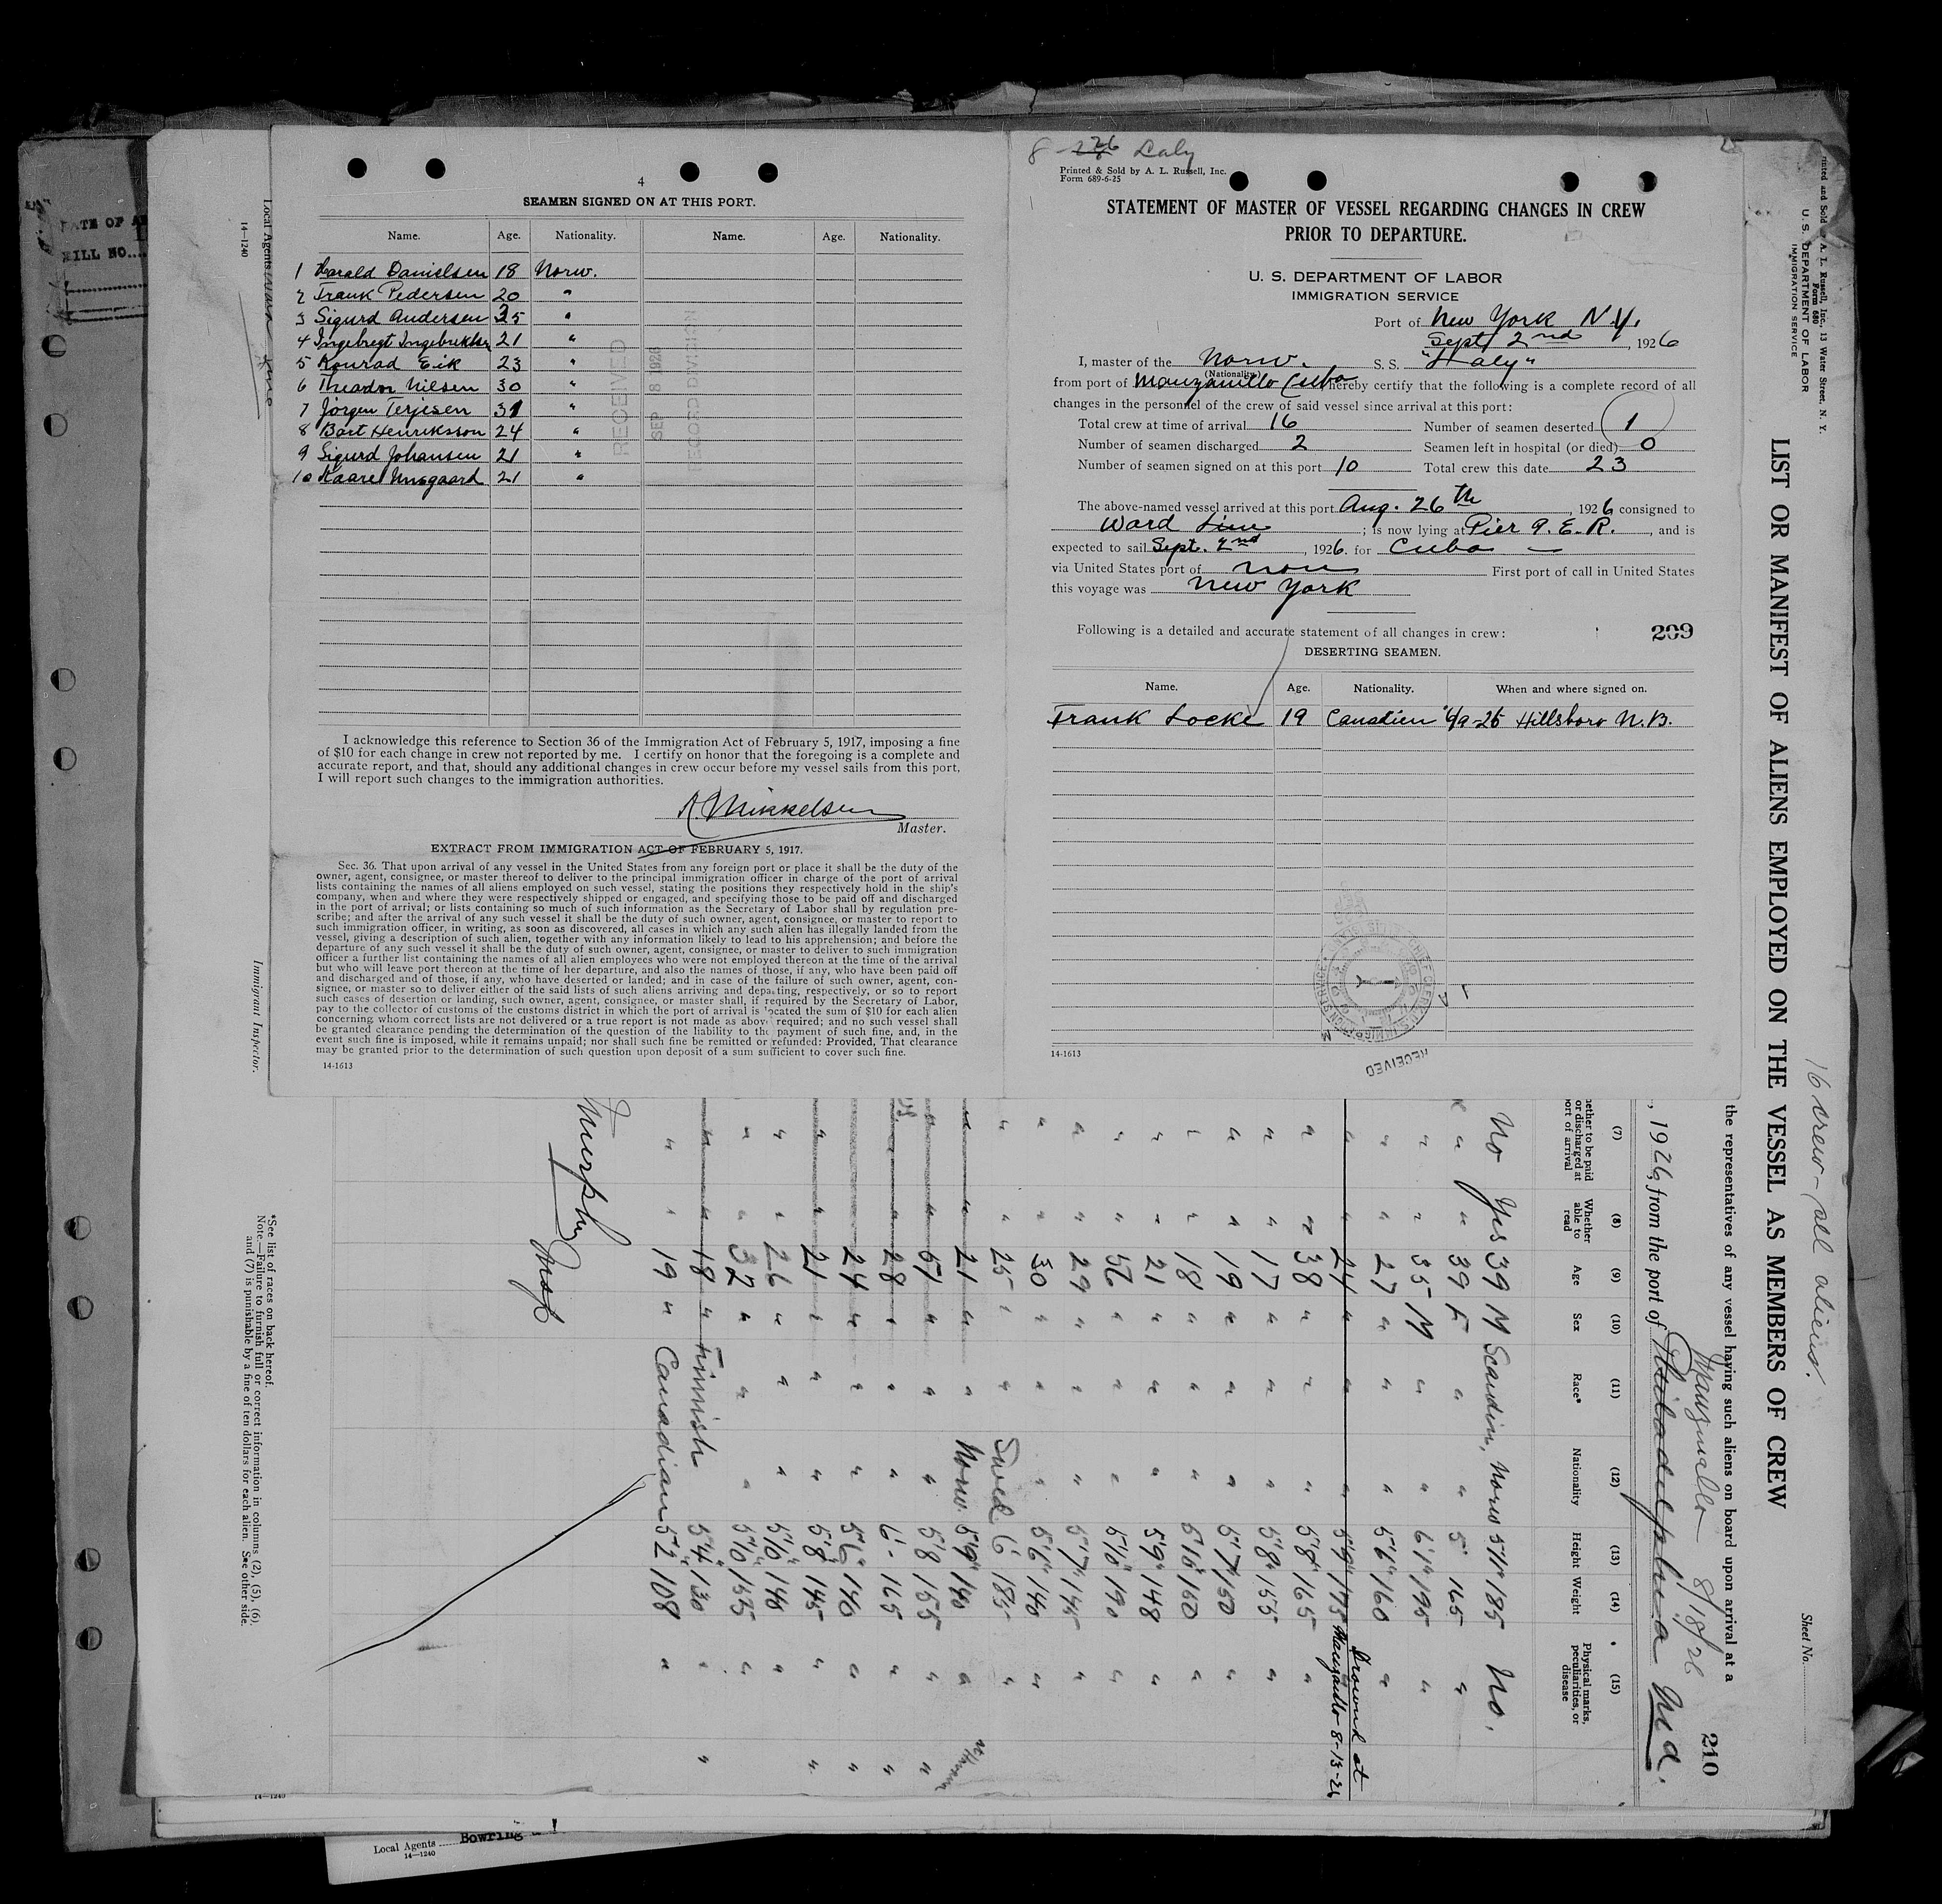 4
SEAMEN SIGNED ON AT THIS PORT.
Name. Age. Nationality. Name. Age. Nationality.
1 Harald Danielsen 18 Norw.
2 Frank Pedersen 20 "
3 Sigurd Andersen 25 "
4 Ingebregt 21 "
5 Konrad Eik 23 "
6 Nilsen 30 "
7 Jörgen Terjesen 31 "
8 Bart Henriksson 24 "
9 Sigurd Johansen 21 "
10 Kaare 21 "
RECEIVED
SEP 8 1926
RECORD DIVISION
I acknowledge this reference to Section 36 of the Immigration Act of February 5, 1917, imposing a fine
of $10 for each change in crew not reported by me. I certify on honor that the foregoing is a complete and
accurate report, and that, should any additional changes in crew occur before my vessel sails from this port,
I will report such changes to the immigration authorities.
Mikkelsen
Master.
EXTRACT FROM IMMIGRATION ACT OF FEBRUARY 5, 1917.
Sec. 36. That upon arrival of any vessel in the United States from any foreign port or place it shall be the duty of the
owner, agent, consignee, or master thereof to deliver to the principal immigration officer in charge of the port of arrival
lists containing the names of all aliens employed on such vessel, stating the positions they respectively hold in the ship's
company, when and where they were respectively shipped or engaged, and specifying those to be paid off and discharged
in the port of arrival; or lists containing so much of such information as the Secretary of Labor shall by regulation pre-
scribe; and after the arrival of any such vessel it shall be the duty of such owner, agent, consignee, or master to report to
such immigration officer, in writing, as soon as discovered, all cases in which any such alien has illegally landed from the
vessel, giving a description of such alien, together with any information likely to lead to his apprehension; and before the
departure of any such vessel it shall be the duty of such owner, agent, consignee, or master to deliver to such immigration
officer a further list containing the names of all alien employees who were not employed thereon at the time of the arrival
but who will leave port thereon at the time of her departure, and also the names of those, if any, who have been paid off
and discharged and of those, if any, who have deserted or landed; and in case of the failure of such owner, agent, con-
signee, or master so to deliver either of the said lists of such aliens arriving and departing, respectively, or so to report
such cases of desertion or landing, such owner, agent, consignee, or master shall, if required by the Secretary of Labor,
pay to the collector of customs of the customs district in which the port of arrival is located the sum of $10 for each alien
concerning whom correct lists are not delivered or a true report is not made as above required; and no such vessel shall
be granted clearance pending the determination of the question of the liability to the payment of such fine, and, in the
event such fine is imposed, while it remains unpaid; nor shall such fine be remitted or refunded: Provided, That clearance
may be granted prior to the determination of such question upon deposit of a sum sufficient to cover such fine.
14-1613
Printed & Sold by A. L. Russell, Inc.
Form 689-6-25
STATEMENT OF MASTER OF VESSEL REGARDING CHANGES IN CREW
PRIOR TO DEPARTURE.
U. S. DEPARTMENT OF LABOR
IMMIGRATION SERVICE
Port of New York N.Y.
Sept 2nd, 1926
I, master of the Norw. S. S.
(Nationality.)
from port of Manzanillo Cuba hereby certify that the following is a complete record of all
changes in the personnel of the crew of said vessel since arrival at this port:
Total crew at time of arrival 16 Number of seamen deserted 1
Number of seamen discharged 2 Seamen left in hospital (or died) 0
Number of seamen signed on at this port 10 Total crew this date 23
The above-named vessel arrived at this port Aug. 26th, 1926 consigned to
Ward Line; is now lying at Pier 9. E. R., and is
expected to sail Sept. 2nd, 1926. for Cuba
via United States port of First port of call in United States
this voyage was New York
Following is a detailed and accurate statement of all changes in crew:
209
DESERTING SEAMEN.
Name. Age. Nationality. When and where signed on.
Frank Locke 19 Canadien Hillsboro N.B.
14-1613
RECEIVED
LIST OR MANIFEST OF ALIENS EMPLOYED ON THE VESSEL AS MEMBERS OF CREW
16 crew - all aliens.
Sheet No.
210
U. S. DEPARTMENT OF LABOR
IMMIGRATION SERVICE
the representatives of any vessel having such aliens on board upon arrival at a
Manzanillo 8/18/26
, 1926, from the port of Philadelphia
(7) (8) (9) (10) (11) (12) (13) (14) (15)
Whether able to read Age Sex Race* Nationality Height Weight Physical marks, peculiarities, or disease
No Yes 39 M Scandin. Norw 5'11" 185 No.
" " 39 F " " 5' 165 "
" " 35 M " " 6'1" 195 "
" " 27 " " " 5'6" 160 "
" " 24 " " " 5'9" 175 Drowned at Manzanillo 8-13-26
" " 38 " " " 5'8" 165 "
" " 17 " " " 5'8" 155 "
" " 19 " " " 5'7" 150 "
" " 18 " " " 150 "
" " 21 " " " 5'9" 148 "
" " 56 " " " 5'10" 190 "
" " 29 " " " 5'7" 145 "
" " 30 " " " 5'6" 140 "
" " 25 " " Swed. 6' 185 "
" " 21 " " Norw. 5'9" 140 "
" " " " " 5'8" 155 "
" " 28 " " " 6'- 165 "
" " 24 " " " 5'6" 140 "
" " 21 " " " 5'8" 145 "
" " 26 " " " 5'6" 148 "
" " 32 " " " 5'10" 155 "
" " 18 " Finnish 5'4" 130 "
" " 19 " Canadian 5'2" 108 "
Murphy Insp
*See list of races on back hereof.
Note.—Failure to furnish full or correct information in columns (2), (5), (6),
and (7) is punishable by a fine of ten dollars for each alien. See other side.
Immigrant Inspector.
Local Agents
14-1240
Local Agents Bowring
14-1240